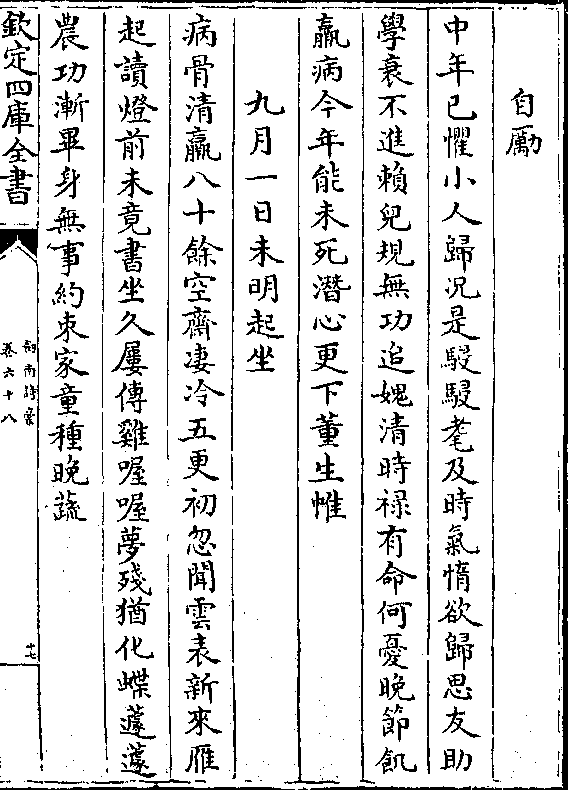 自勵
中年已懼小人歸况是駸駸耄及時氣惰欲歸思友助
學衰不進賴兒規無功追媿清時禄有命何憂晚節飢
羸病今年能未死潛心更下董生帷
九月一日未明起坐
病骨清羸八十餘空齋凄冷五更初忽聞雲表新來雁
起讀燈前未竟書坐久屢傳雞喔喔夢殘猶化蝶蘧蘧
農功漸畢身無事約束家童種晚蔬
欽定四庫全書
劍南詩槀
卷六十八
十七